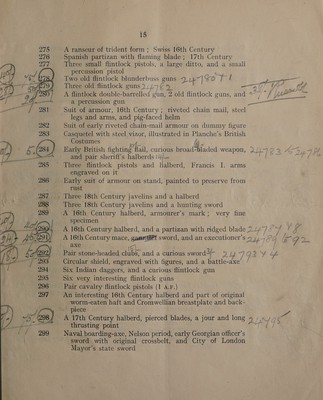 15
275 A ranseur of trident form ; Swiss 16th Century
276 Spanish partisan with flaming blade ; 17th Century
277 Three small flintlock pistols, a large ditto, and a small
percussion pistol
278 Two old flintlock blunderbuss guns
279 Three old flintlock guns
280 A flintlock double-barrelled gun, 2 old flintlock guns, and
a percussion gun
281 Suit of armour, 16th Century ; riveted chain mail, steel
legs and arms, and pig-faced helm
282 Suit of early riveted chain-mail armour on dummy figure
283 Casquetel with steel visor, illustrated in Planche's British
Costumes
284 Early British fighting flail, curious broad-bladed weapon,
and pair sheriff's halberds
285 Three flintlock pistols and halberd, Francis I. arms
engraved on it
286 Early suit of armour on stand, painted to preserve from
rust
287 Three 18th Century javelins and a halberd
288 Three 18th Century javelins and a hunting sword
289 A 16th Century halberd, armourer's mark ; very fine
specimen
290 A 16th Century halberd, and a partisan with ridged blade
291 A 16th Century mace, sword, and an executioner's
axe
292 Pair stone-headed clubs, and a curious sword
293 Circular shield, engraved with figures, and a battle-axe
294 Six Indian daggers, and a curious flintlock gun
295 Six very interesting flintlock guns
296 Pair cavalry flintlock pistols (1 A.F.)
297 An interesting 16th Century halberd and part of original
worm-eaten haft and Cromwellian breastplate and back-
piece
298 A 17th Century halberd, pierced blades, a jour and long
thrusting point
299 Naval boarding-axe, Nelson period, early Georgian officer's
sword with original crossbelt, and City of London
Mayor's state sword